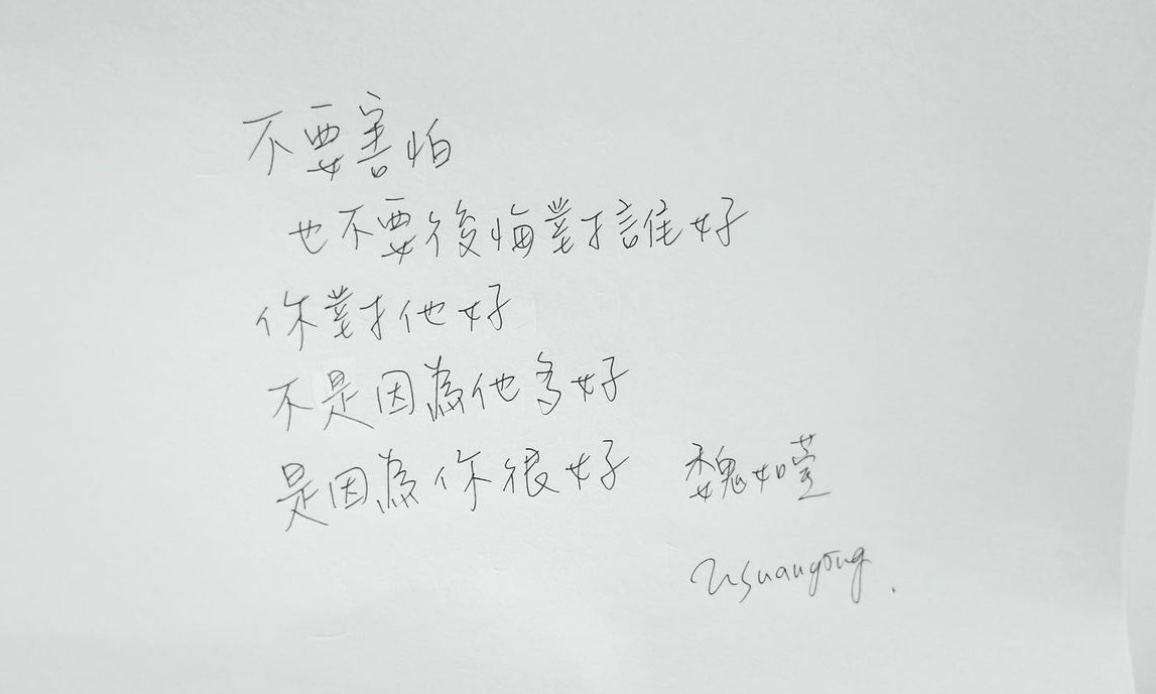 不要害怕
也不要後悔對誰好
你對他好
不是因為他多好
是因為你很好
魏如萱